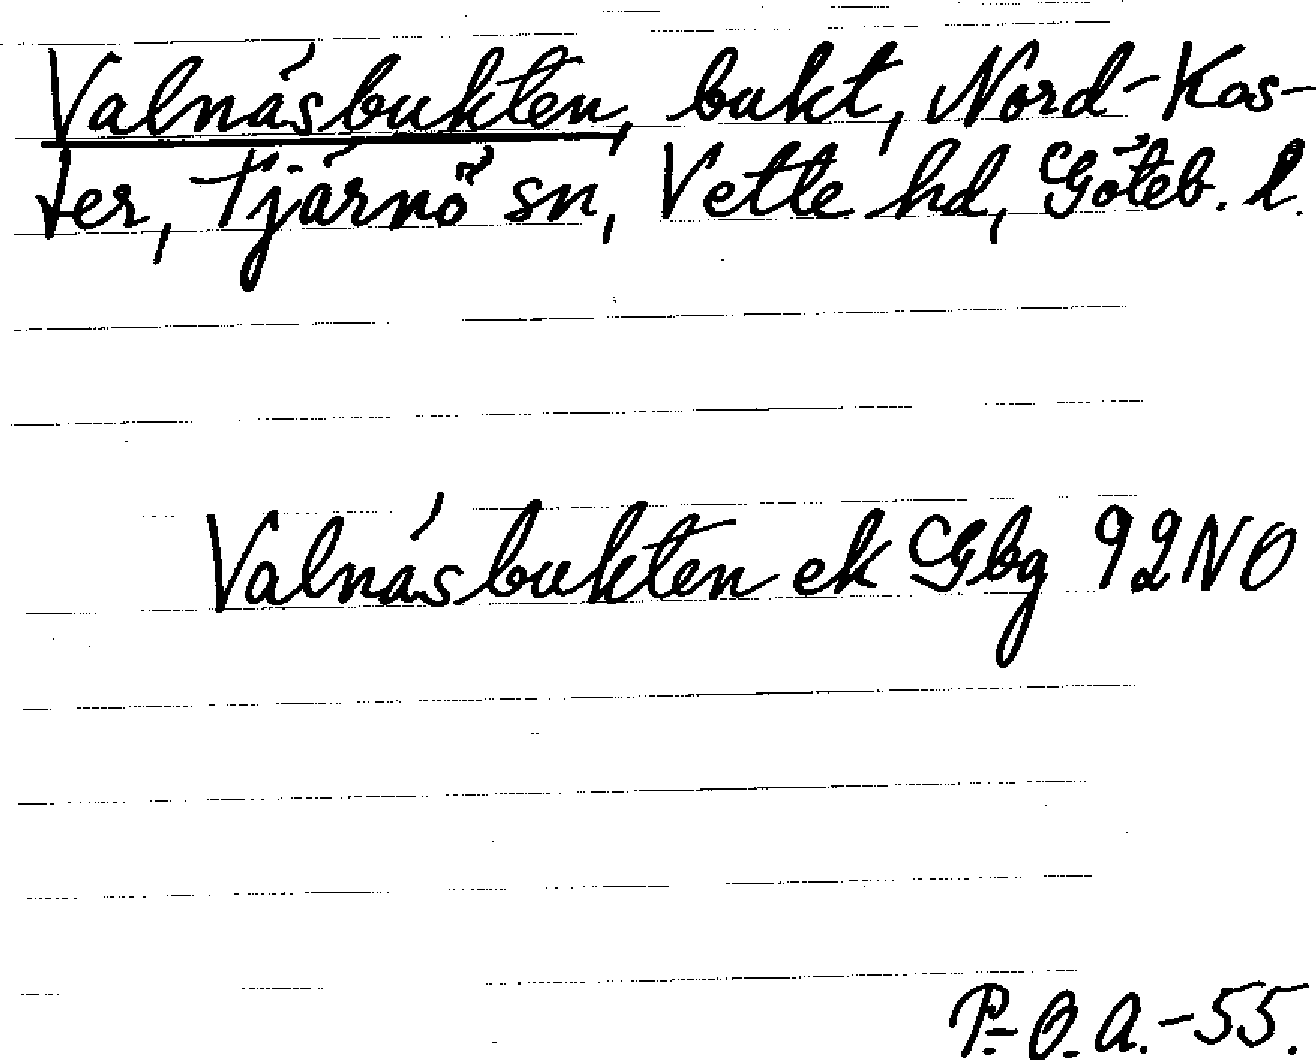 Valnäsbukten, bukt, Nord-Kos-
ter, Tjärnö sn, Vette hd, Göteb. l.
Valnäsbukten ek Gbg 92NO
P.-O. A.-55.